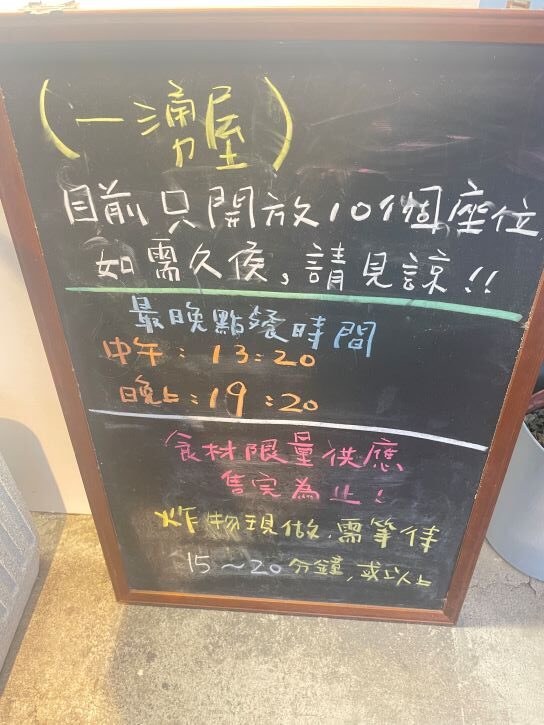 (一湧屋)
目前只開放10個座位
如需久侯,請見諒!!
最晚點餐時間
中午:13:20
晚上:19:20
食材限量供應
售完為止!
炸物現做,需等待
15~20分鐘,或以上